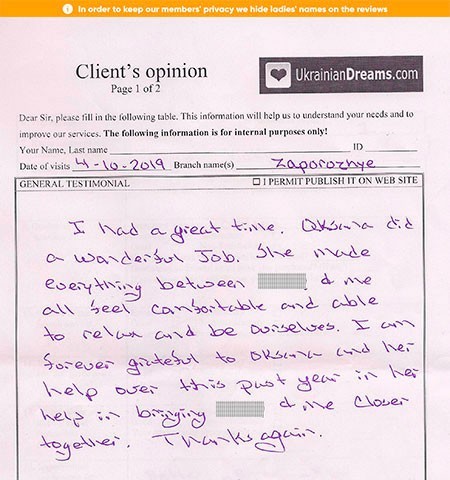 In order to keep our members' privacy we hide ladies' names on the reviews
Client's opinion
Page 1 of 2
UkrainianDreams.com
Dear Sir, please fill in the following table. This information will help us to understand your needs and to
improve our services. The following information is for internal purposes only!
Your Name, Last name ID
Date of visits 4-10-2019 Branch name(s) Zaporozhye
GENERAL TESTIMONIAL ☐ I PERMIT PUBLISH IT ON WEB SITE
I had a great time. Oksana did
a wonderful Job. She made
everything between & me
all feel comfortable and able
to relax and be ourselves. I am
forever grateful to Oksana and her
help over this past year in her
help in bringing & me closer
together. Thanks again.